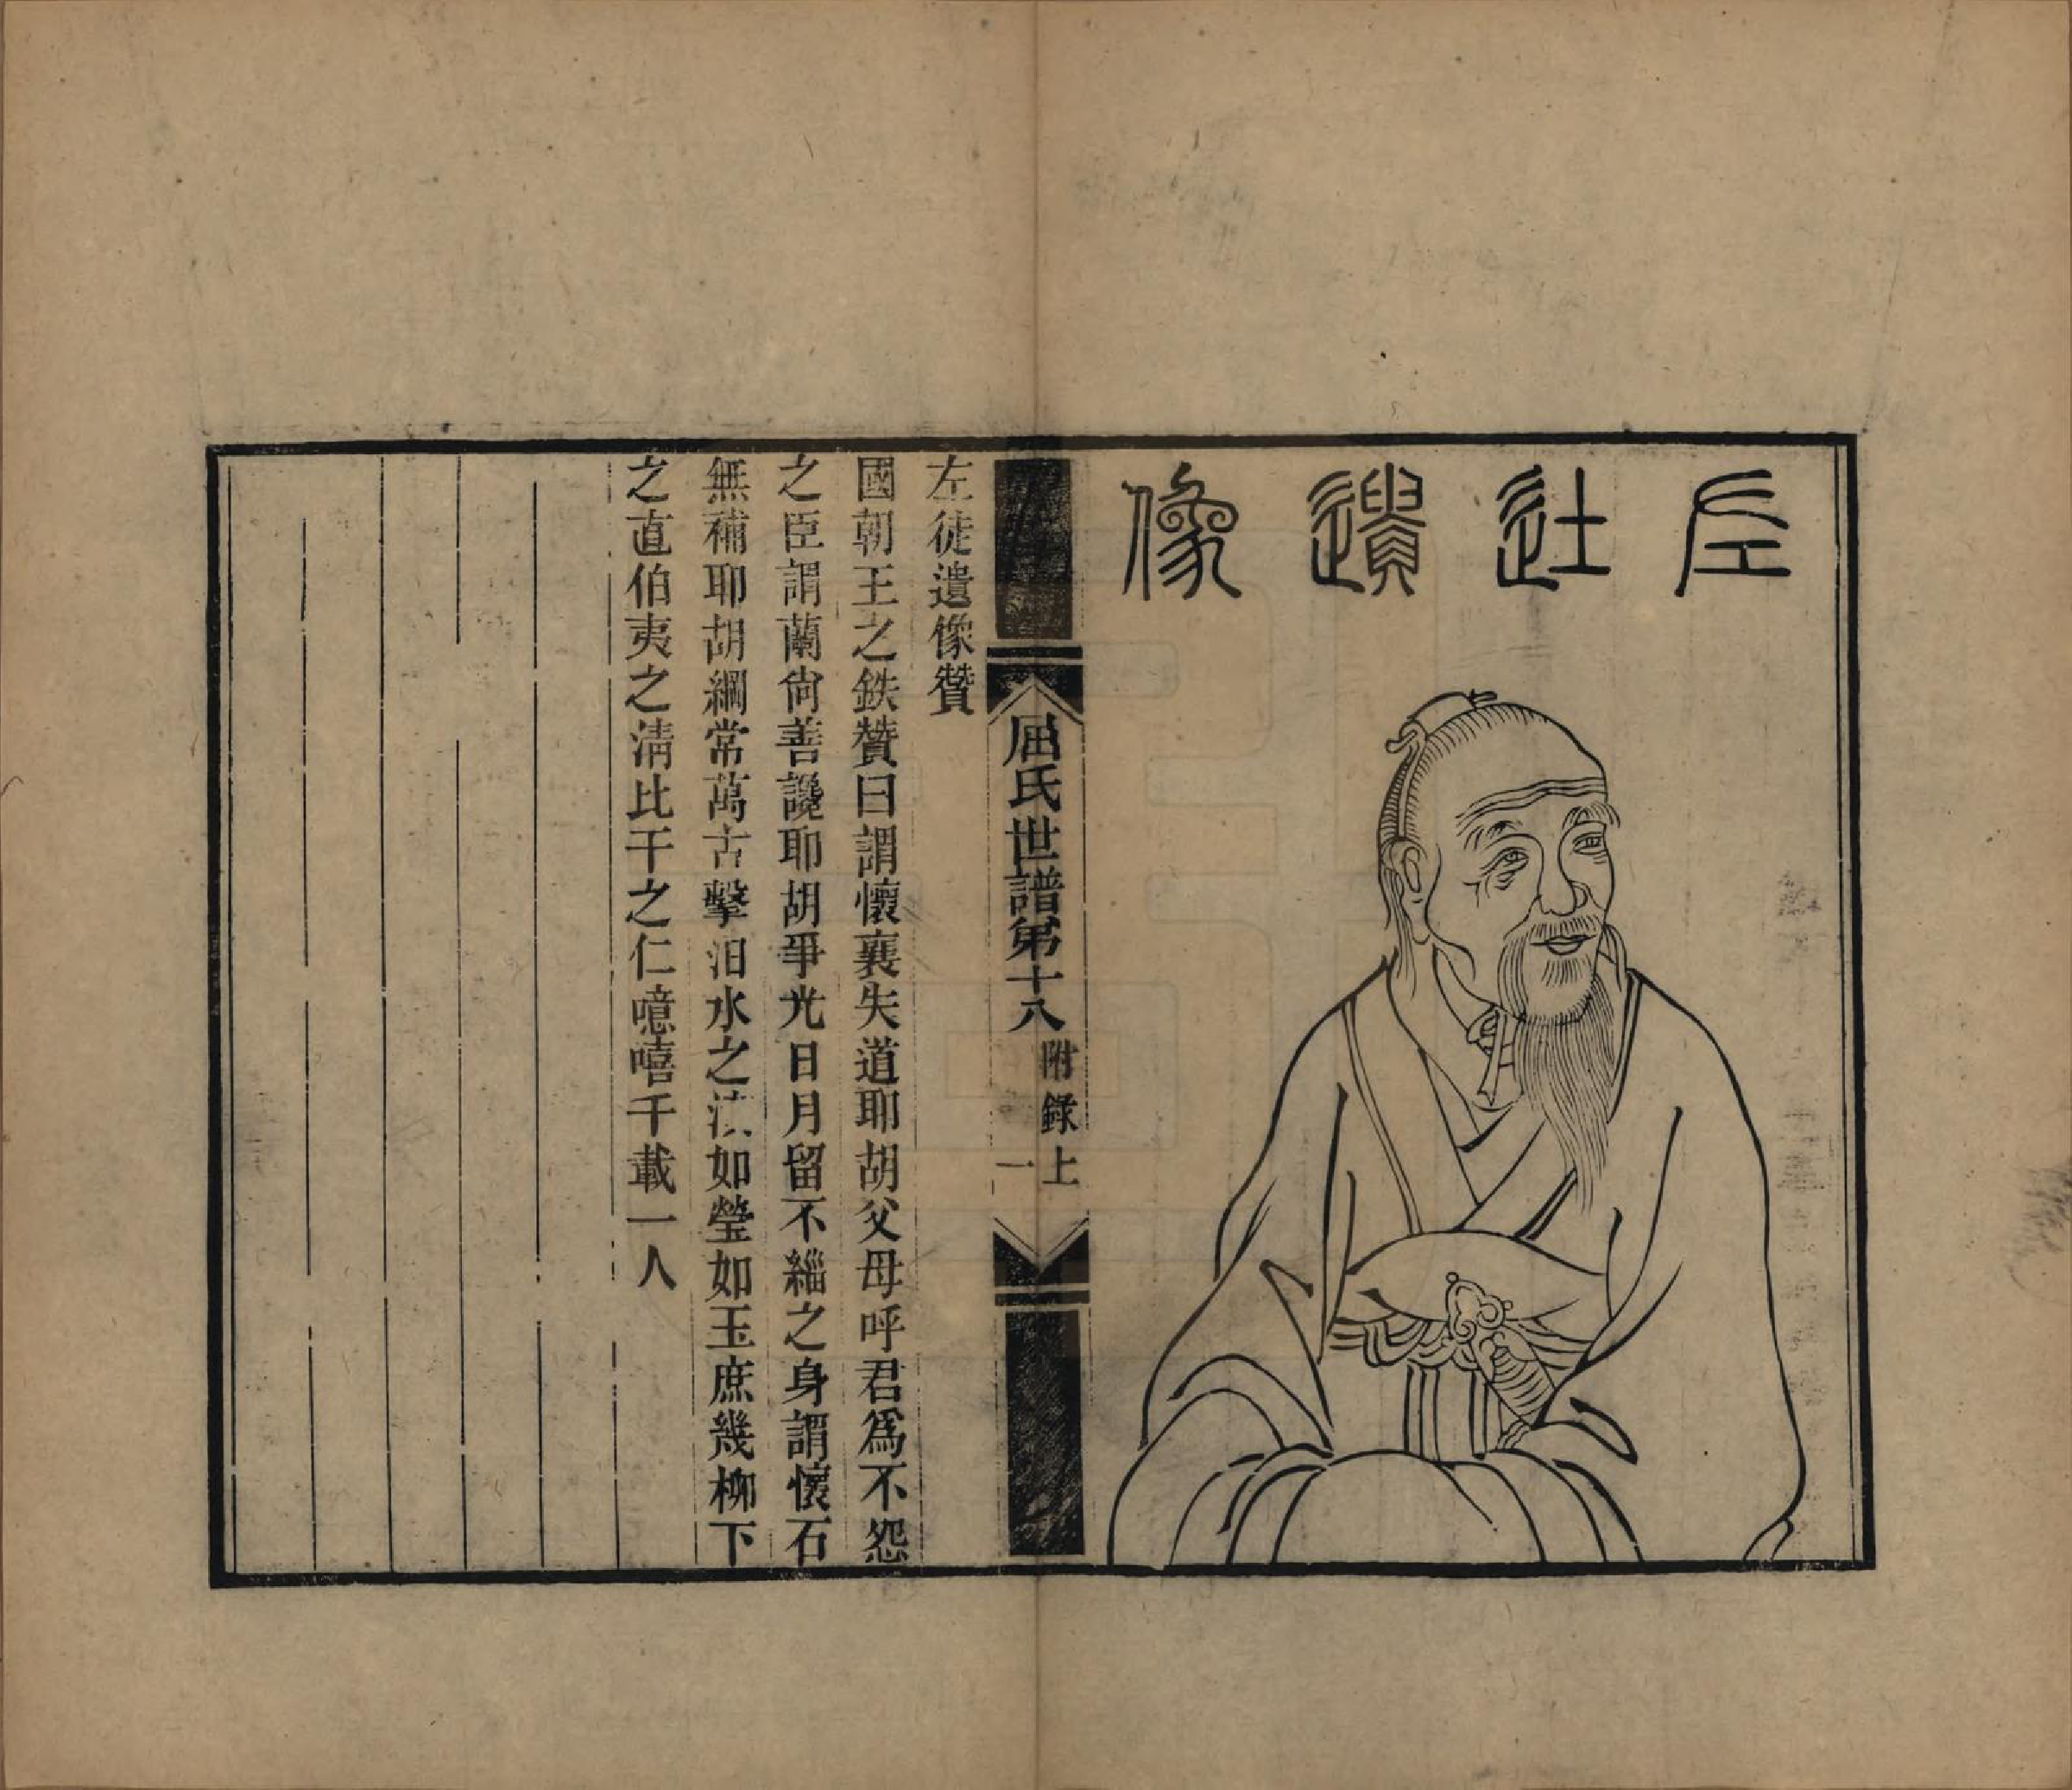 左辻遺像
屈氏世譜第十八
附錄上
一
左徒遺像贊
國朝王之鈇贊曰謂懷襄失道耶胡父母呼君爲不怨
之臣謂蘭尙善讒耶胡爭光日月留不緇之身謂懷石
無補耶胡綱常萬古擊汨水之 如瑩如玉庶幾柳下
之直伯夷之淸比干之仁噫嘻千載一人